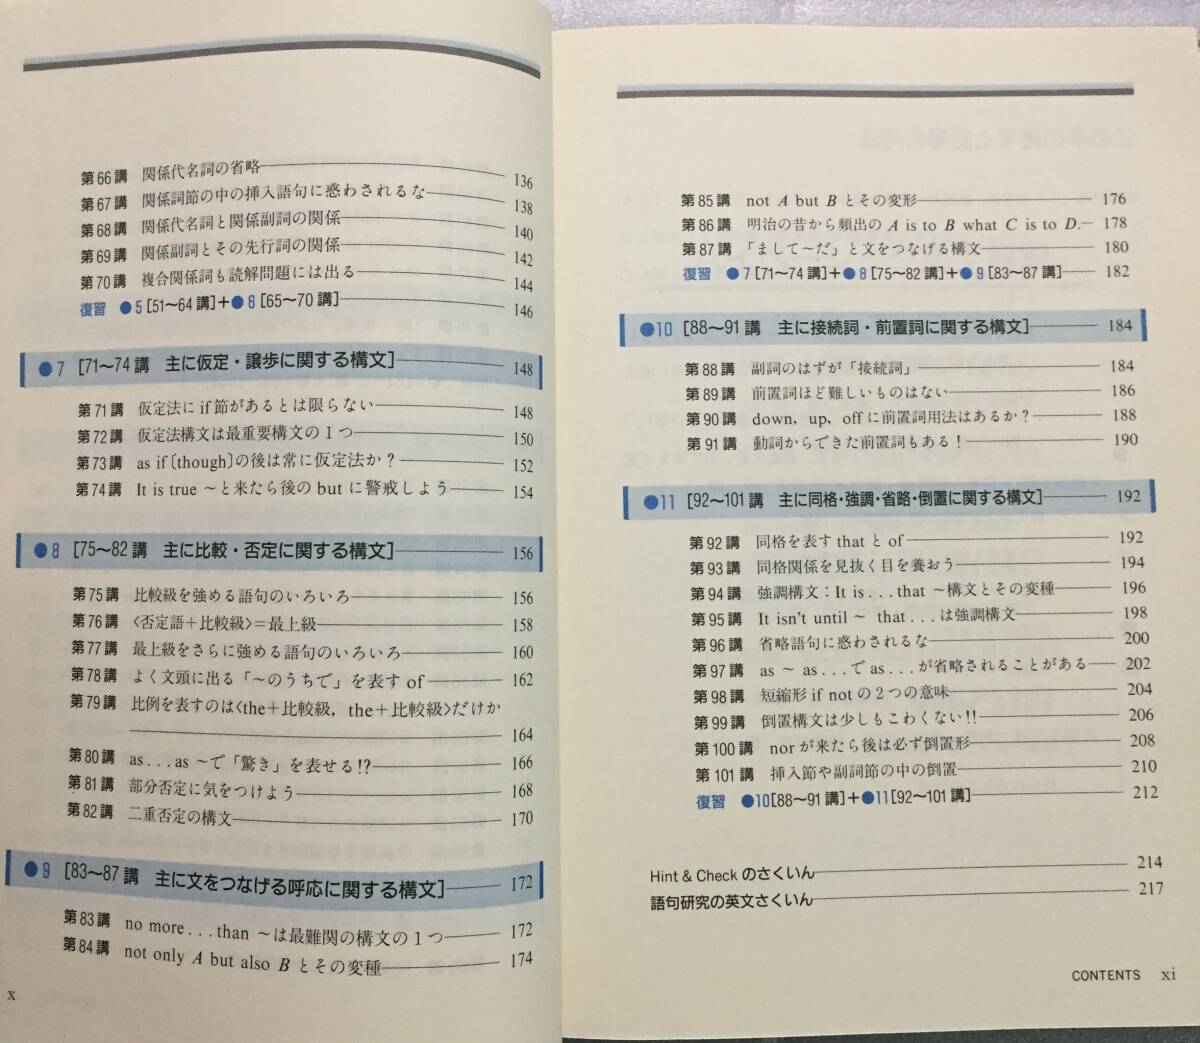 第66講 関係代名詞の省略 136
第67講 関係詞節の中の挿入語句に惑わされるな 138
第68講 関係代名詞と関係副詞の関係 140
第69講 関係副詞とその先行詞の関係 142
第70講 複合関係詞も読解問題には出る 144
復習 ●5[51〜64講]+●6[65〜70講] 146
●7 [71〜74講 主に仮定・譲歩に関する構文] 148
第71講 仮定法にif節があるとは限らない 148
第72講 仮定法構文は最重要構文の1つ 150
第73講 as if〔though〕の後は常に仮定法か? 152
第74講 It is true 〜と来たら後のbutに警戒しよう 154
●8 [75〜82講 主に比較・否定に関する構文] 156
第75講 比較級を強める語句のいろいろ 156
第76講 〈否定語+比較級〉=最上級 158
第77講 最上級をさらに強める語句のいろいろ 160
第78講 よく文頭に出る「〜のうちで」を表すof 162
第79講 比例を表すのは〈the+比較級, the+比較級〉だけか
164
第80講 as...as〜で「驚き」を表せる!? 166
第81講 部分否定に気をつけよう 168
第82講 二重否定の構文 170
●9 [83〜87講 主に文をつなげる呼応に関する構文] 172
第83講 no more...than 〜は最難関の構文の1つ 172
第84講 not only A but also B とその変種 174
x
第85講 not A but B とその変形 176
第86講 明治の昔から頻出の A is to B what C is to D. 178
第87講 「まして〜だ」と文をつなげる構文 180
復習 ●7[71〜74講]+●8[75〜82講]+●9[83〜87講] 182
●10 [88〜91講 主に接続詞・前置詞に関する構文] 184
第88講 副詞のはずが「接続詞」 184
第89講 前置詞ほど難しいものはない 186
第90講 down, up, offに前置詞用法はあるか? 188
第91講 動詞からできた前置詞もある! 190
●11 [92〜101講 主に同格・強調・省略・倒置に関する構文] 192
第92講 同格を表すthatとof 192
第93講 同格関係を見抜く目を養おう 194
第94講 強調構文:It is...that 〜構文とその変種 196
第95講 It isn't until 〜 that...は強調構文 198
第96講 省略語句に惑わされるな 200
第97講 as 〜 as...でas...が省略されることがある 202
第98講 短縮形if notの2つの意味 204
第99講 倒置構文は少しもこわくない!! 206
第100講 norが来たら後は必ず倒置形 208
第101講 挿入節や副詞節の中の倒置 210
復習 ●10[88〜91講]+●11[92〜101講] 212
Hint & Check のさくいん 214
語句研究の英文さくいん 217
CONTENTS xi